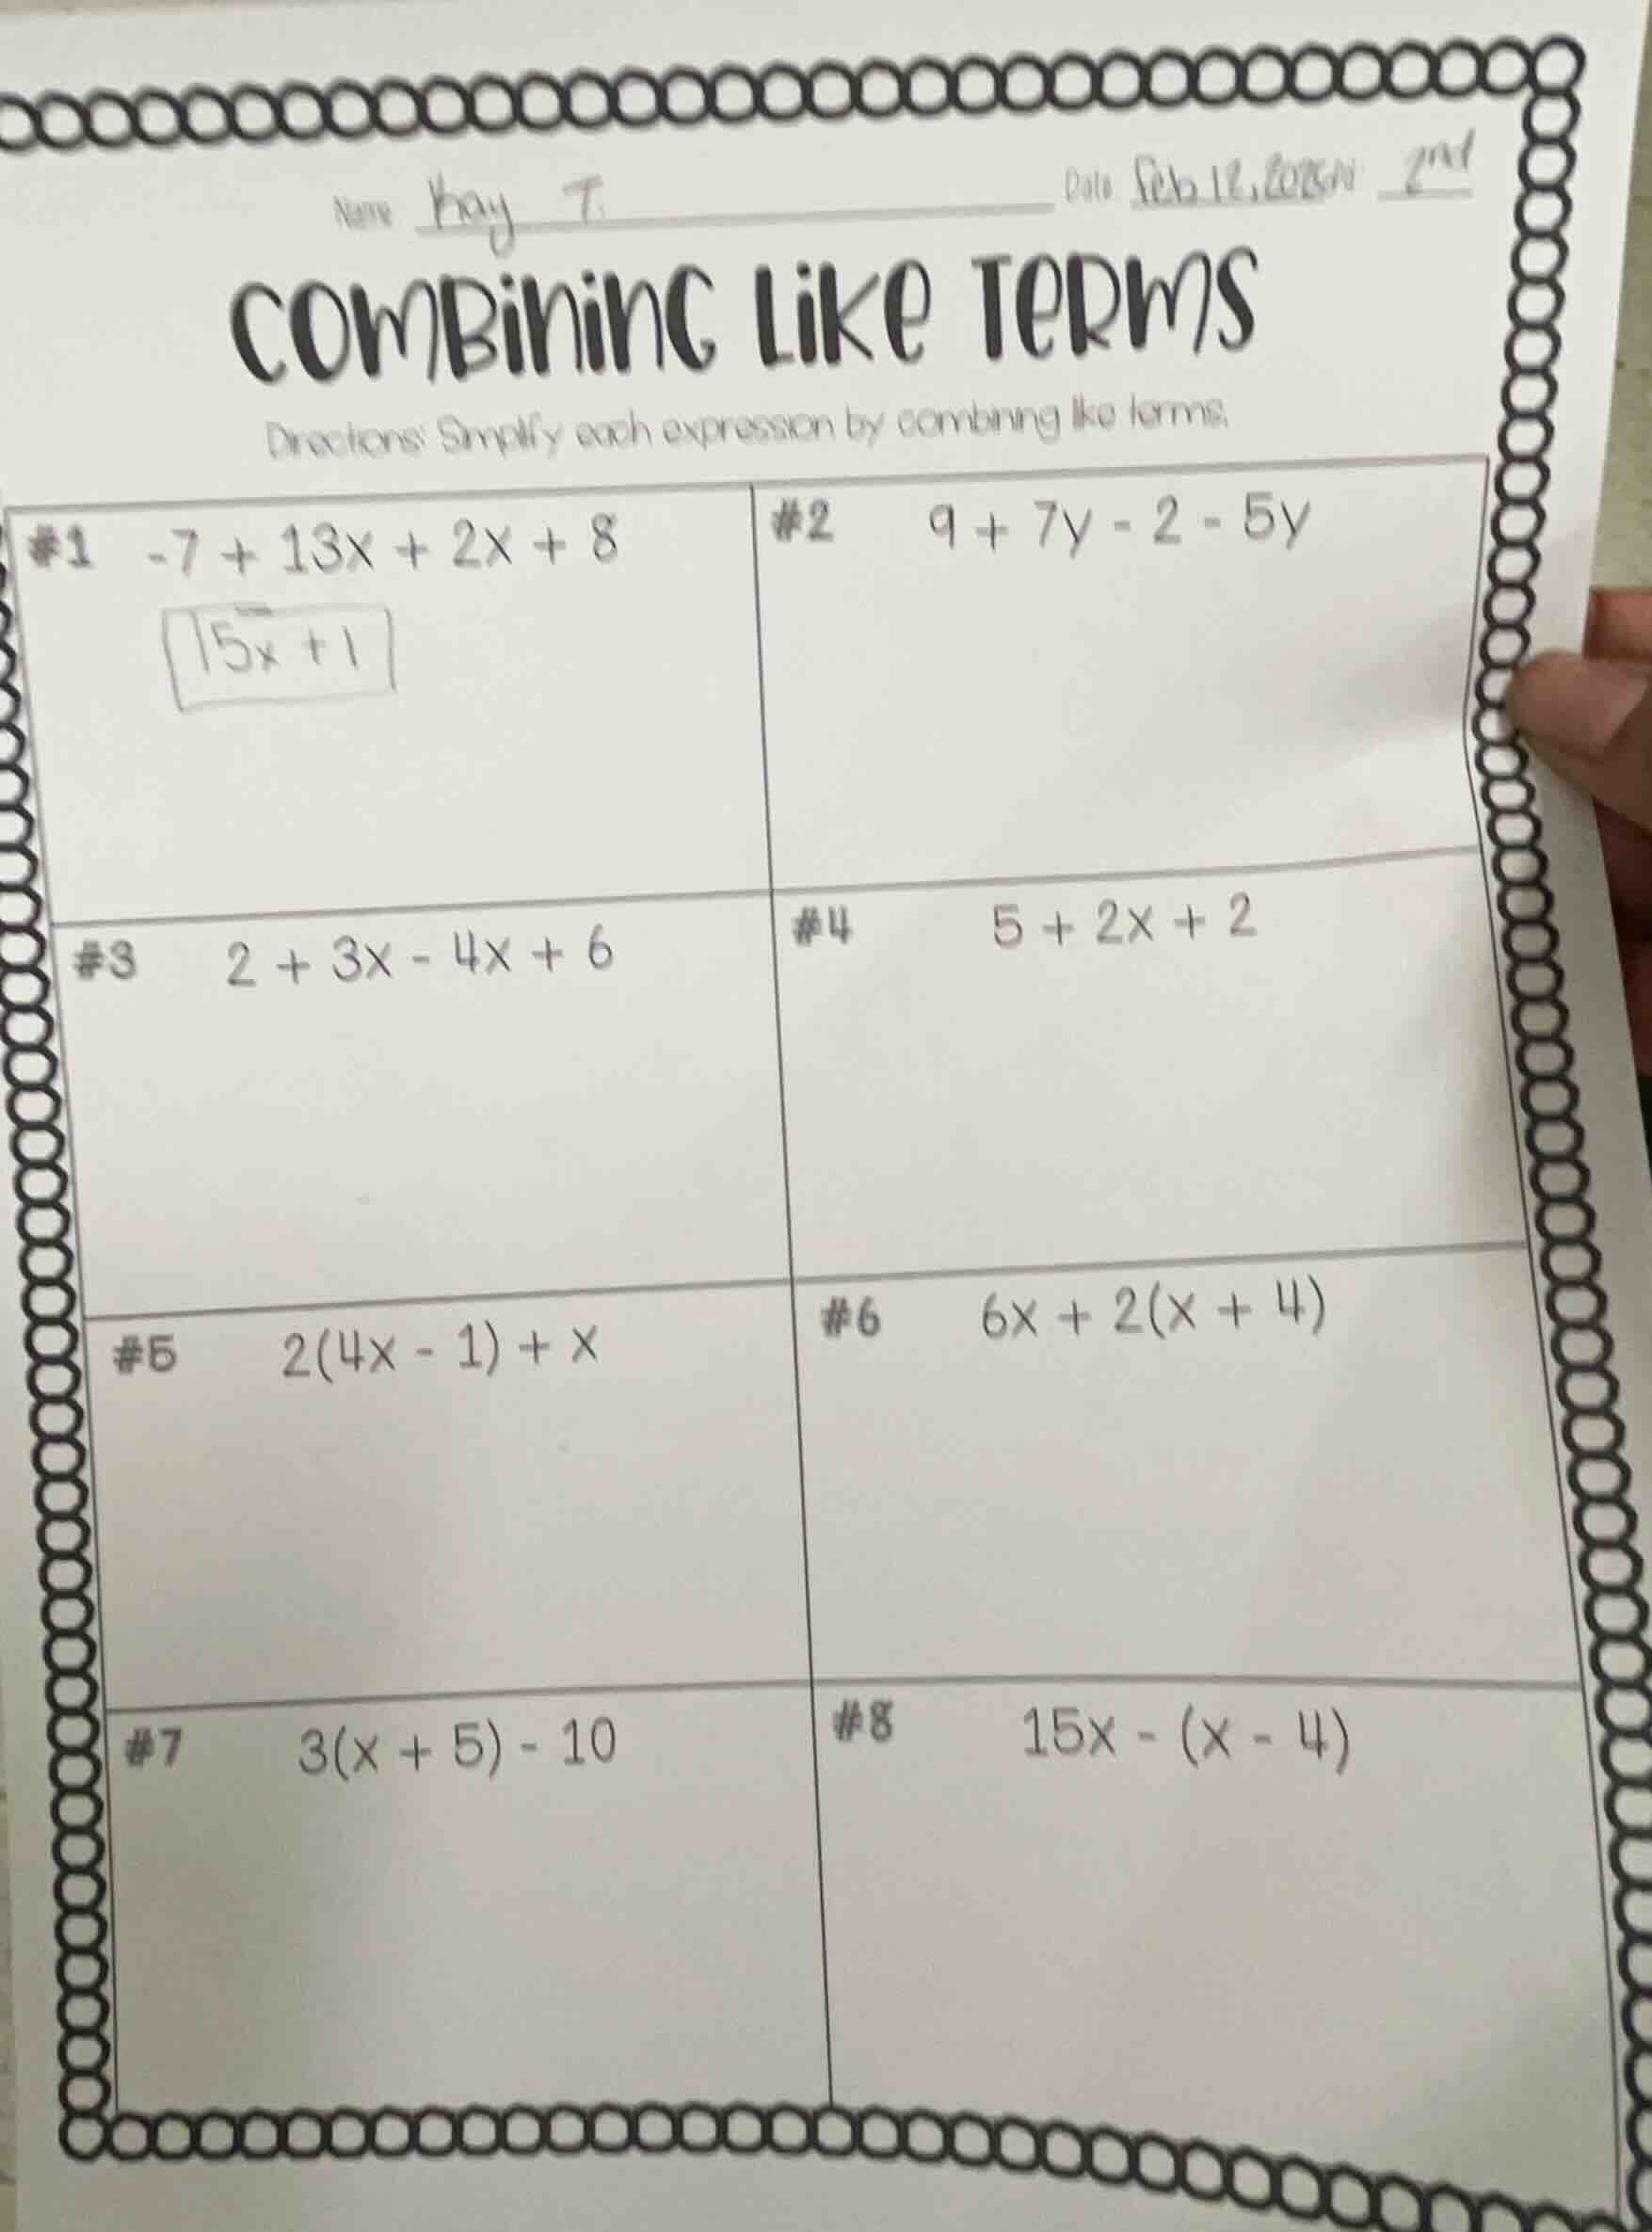 Name Kay T. Date Feb 12, 2nd
Combining Like Terms
Directions: Simplify each expression by combining like terms.
#1 -7 + 13x + 2x + 8
15x + 1
#2 9 + 7y - 2 - 5y
#3 2 + 3x - 4x + 6
#4 5 + 2x + 2
#5 2(4x - 1) + x
#6 6x + 2(x + 4)
#7 3(x + 5) - 10
#8 15x - (x - 4)